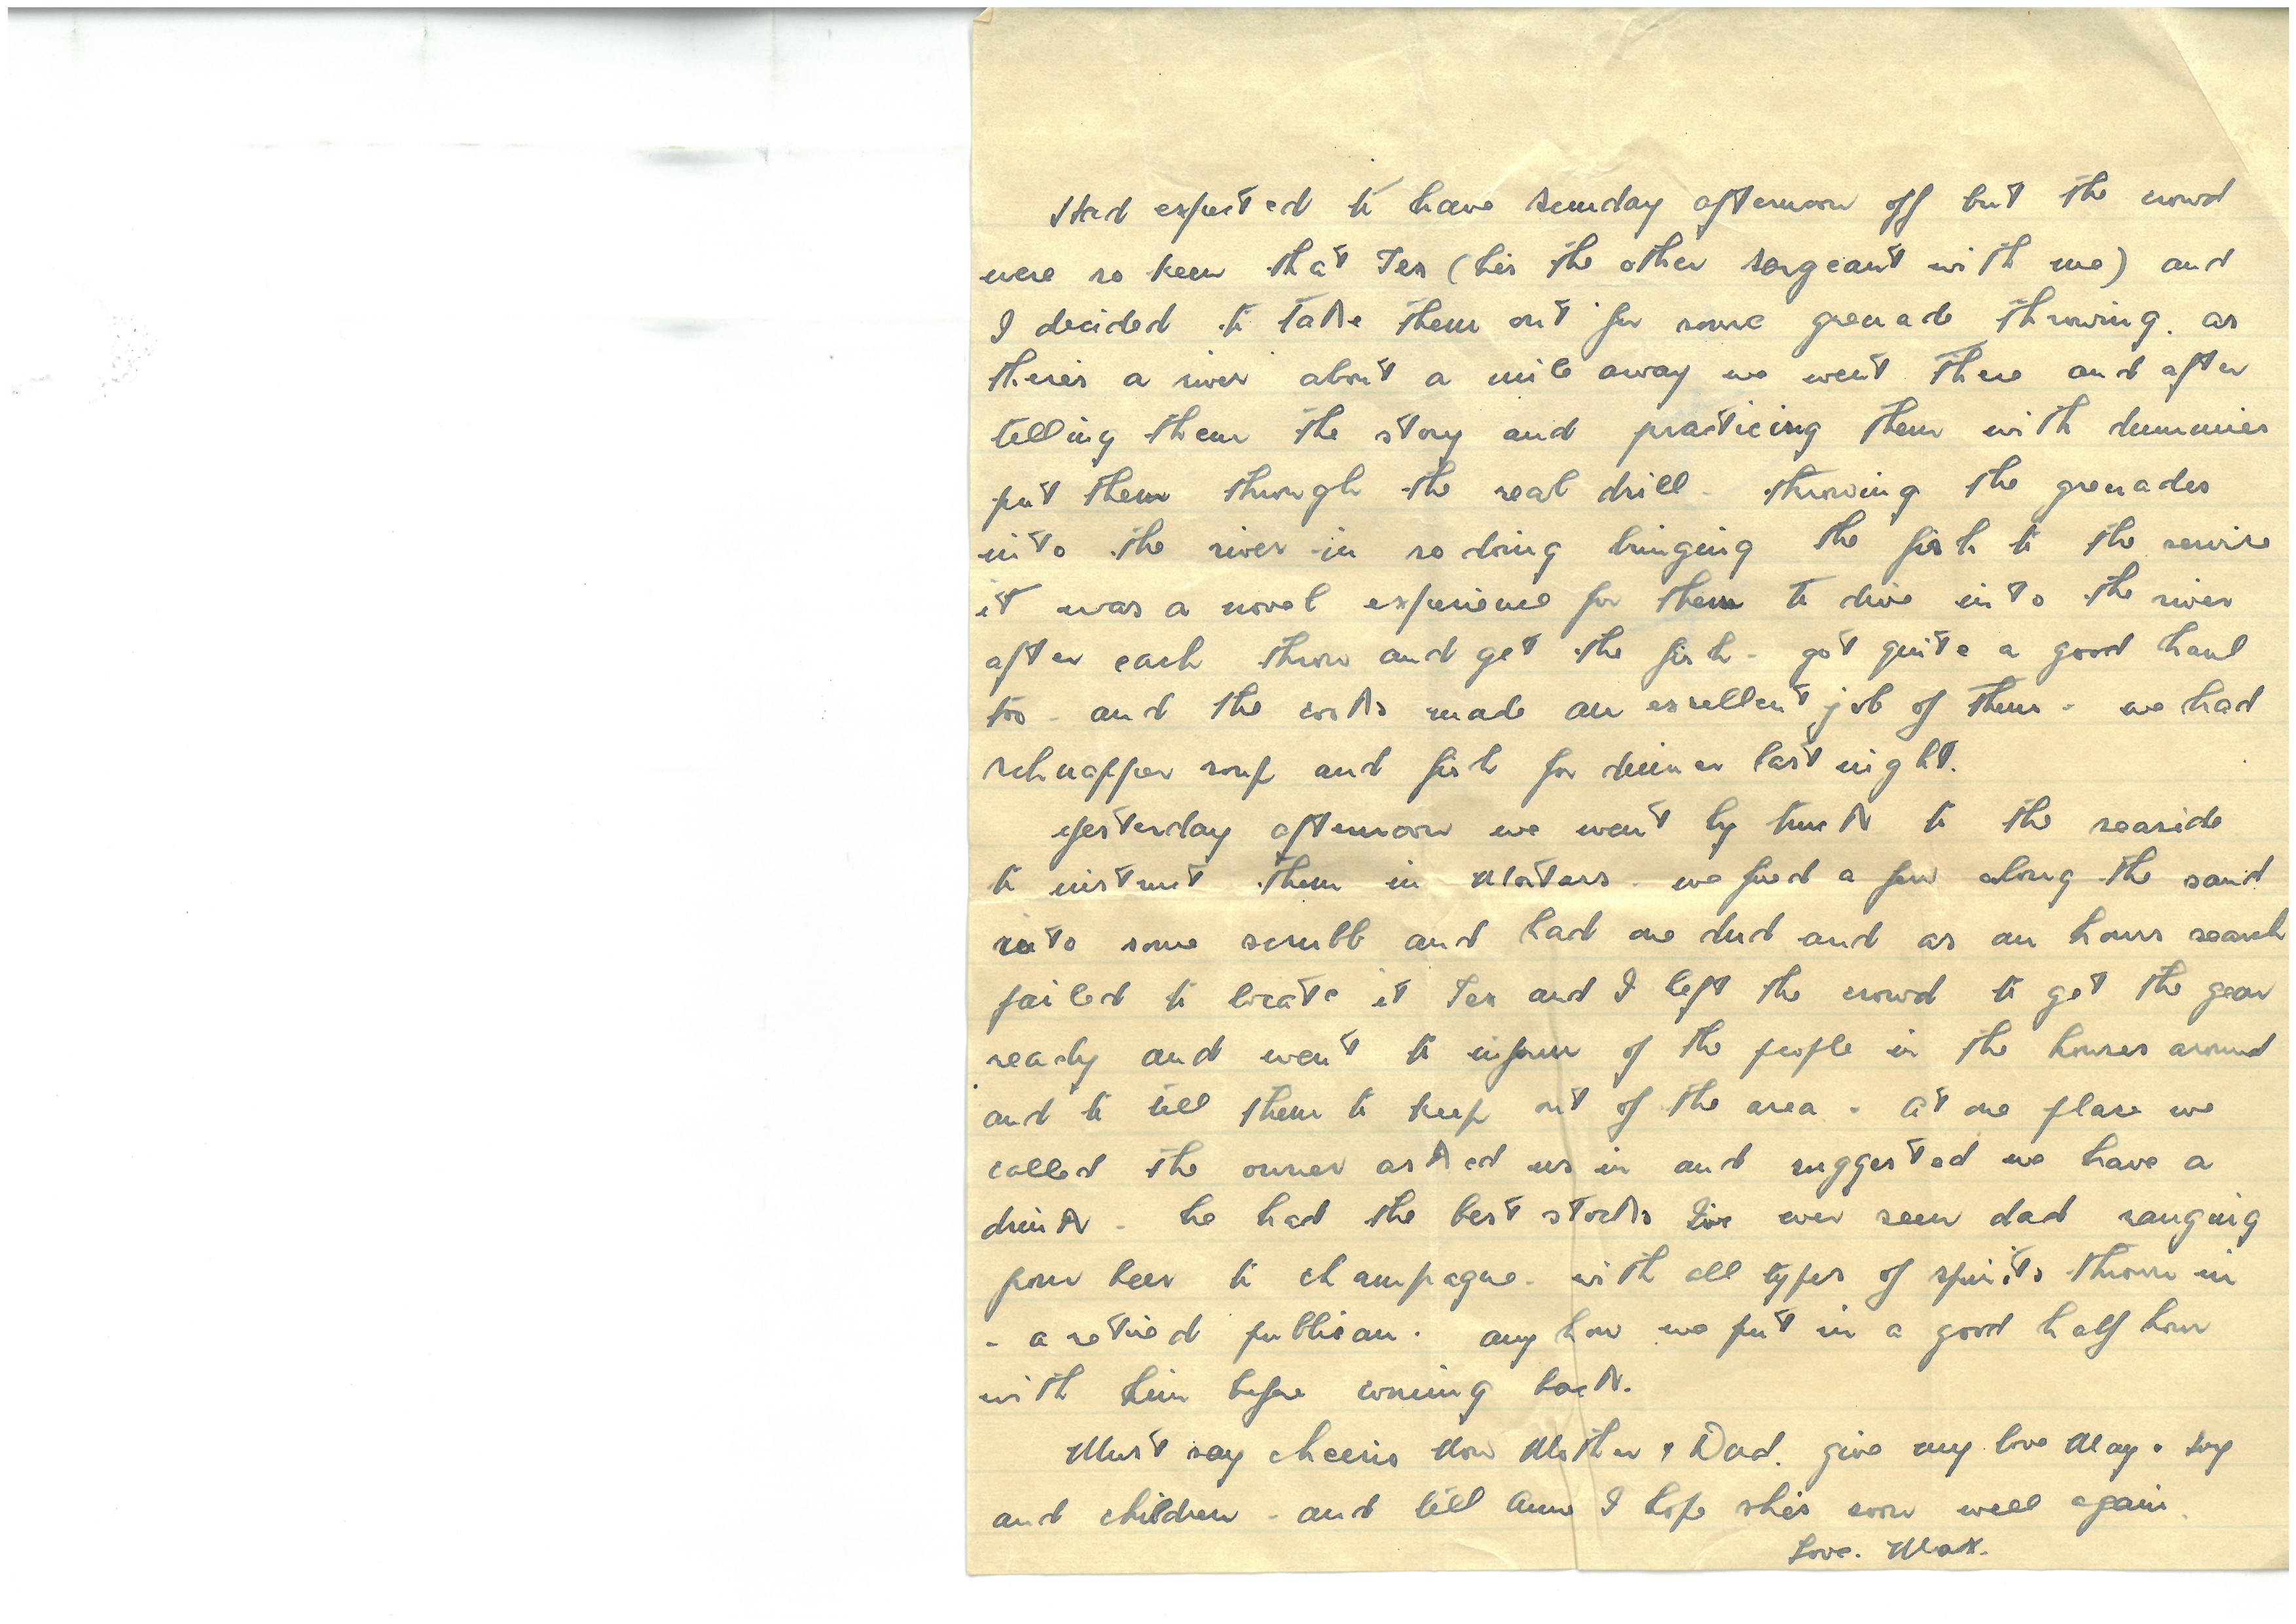 Had expected to have Sunday afternoon off but the crowd
were so keen that Tex (hes the other sergeant with me) and
I decided to take them out for some grenade throwing. as
theres a river about a mile away we went there and after
telling them the story and practicing them with dummies
put them through the real drill - throwing the grenades
into the river - in so doing bringing the fish to the
it was a novel experience for them to dive into the river
after each throw and get the fish - got quite a good haul
too - and the cooks made an excellent job of them - we had
schnapper soup and fish for dinner last night.
Yesterday afternoon we went by truck to the seaside
to instruct them in Mortars - we fired a few along the sand
into some scrubb and had one dud and as an hours search
failed to locate it Tex and I left the crowd to get the gear
ready and went to inform of the people in the houses around
and to tell them to keep out of the area - At one place we
called the owner asked us in and suggested we have a
drink - he had the best stocks Ive ever seen dad ranging
from beer to champagne - with all types of spirits thrown in
- a retired publican. anyhow we put in a good half hour
with him before coming back.
Must say cheerio Now Mother & Dad. give my love May &
and children - and tell Anne I hope shes soon well again.
Love. Max.